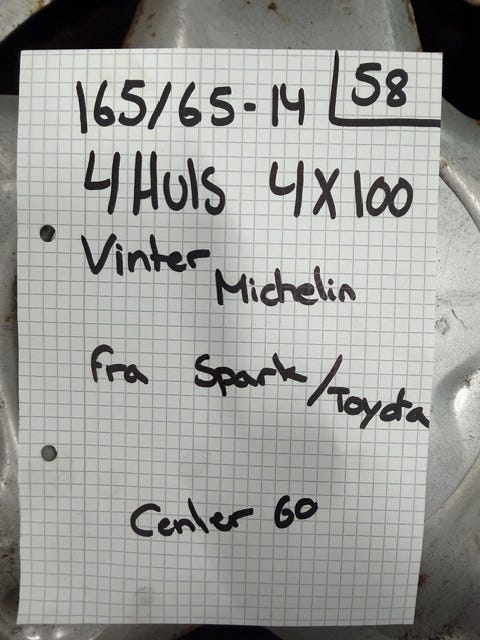 165/65-14 58
4 Huls 4X100
Vinter Michelin
fra Spark/Toyota
Center 60